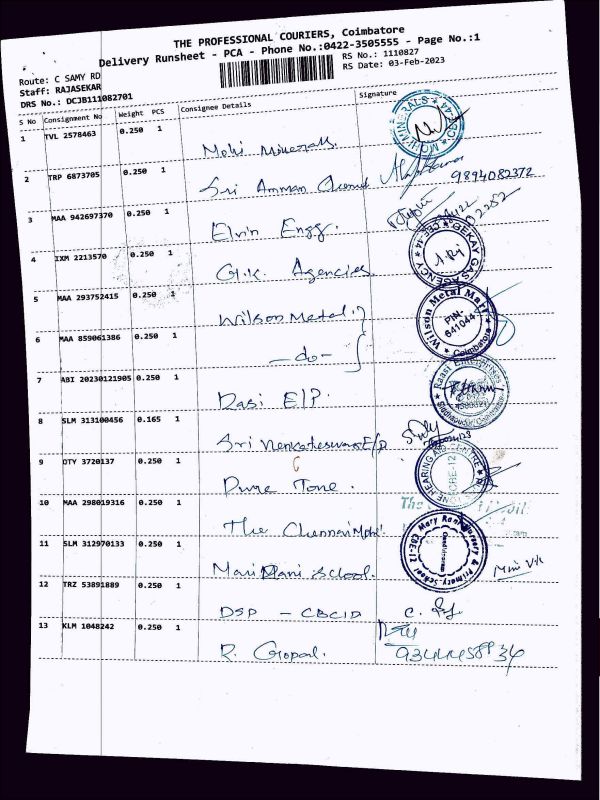 THE PROFESSIONAL COURIERS, Coimbatore
Delivery Runsheet - PCA - Phone No.:0422-3505555 - Page No.:1
Route: C SAMY RD
RS No.: 1110827
Staff: RAJASEKAR
RS Date: 03-Feb-2023
DRS No.: DCJB111082701
S No Consignment No Weight PCS Consignee Details Signature
1 TVL 2578463 0.250 1 Mohi Minerals
2 TRP 6873705 0.250 1 Sri Amman 9894082372
3 MAA 942697370 0.250 1 Elvin Engg.
4 IXM 2213570 0.250 1 G.K. Agencies
GEKAY GAS AGENCY CBE-44
5 MAA 293752415 0.250 1 Wilson Metal
Wilson Metal Mart Coimbatore
PIN-
641044
6 MAA 859061386 0.250 1 -do-
7 ABI 20230121905 0.250 1 Rasi E/P.
Raasi Enterprises
8 SLM 313100456 0.165 1 Sri Venkateswara E/P
9 OTY 3720137 0.250 1 Pure Tone.
TONE HEARING AID CENTRE
CBE-12
10 MAA 298019316 0.250 1 The Chennai Mobil
The
11 SLM 312970133 0.250 1 Mari Rani School.
Mary Rani Nursery & Primary School CBE-12
12 TRZ 53891889 0.250 1 DSP - CBCID
13 KLM 1048242 0.250 1 R. Gopal. 9344458934